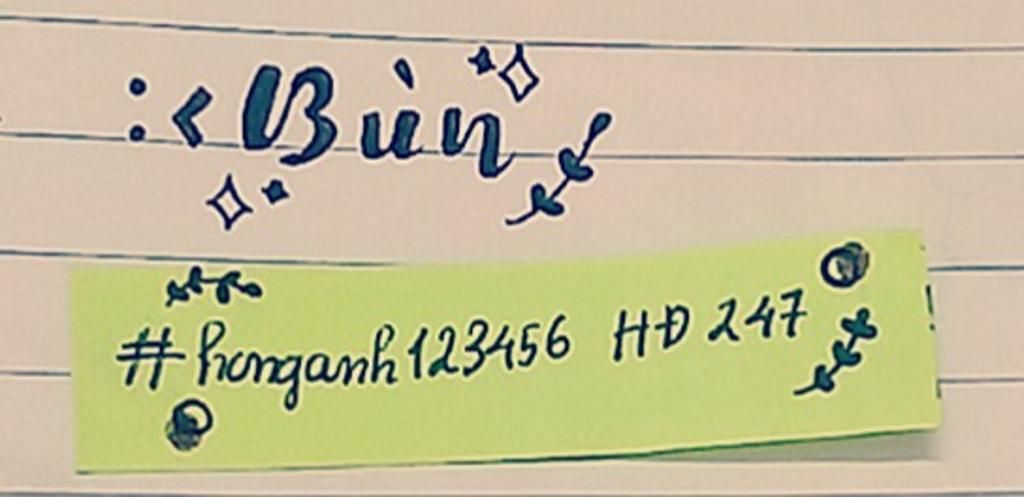 :< Bùn
#honganh123456 HĐ 247